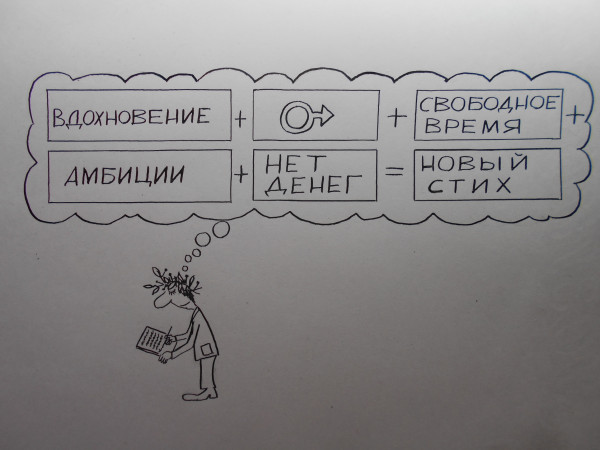 ВДОХНОВЕНИЕ + + СВОБОДНОЕ ВРЕМЯ +
АМБИЦИИ + НЕТ ДЕНЕГ = НОВЫЙ СТИХ